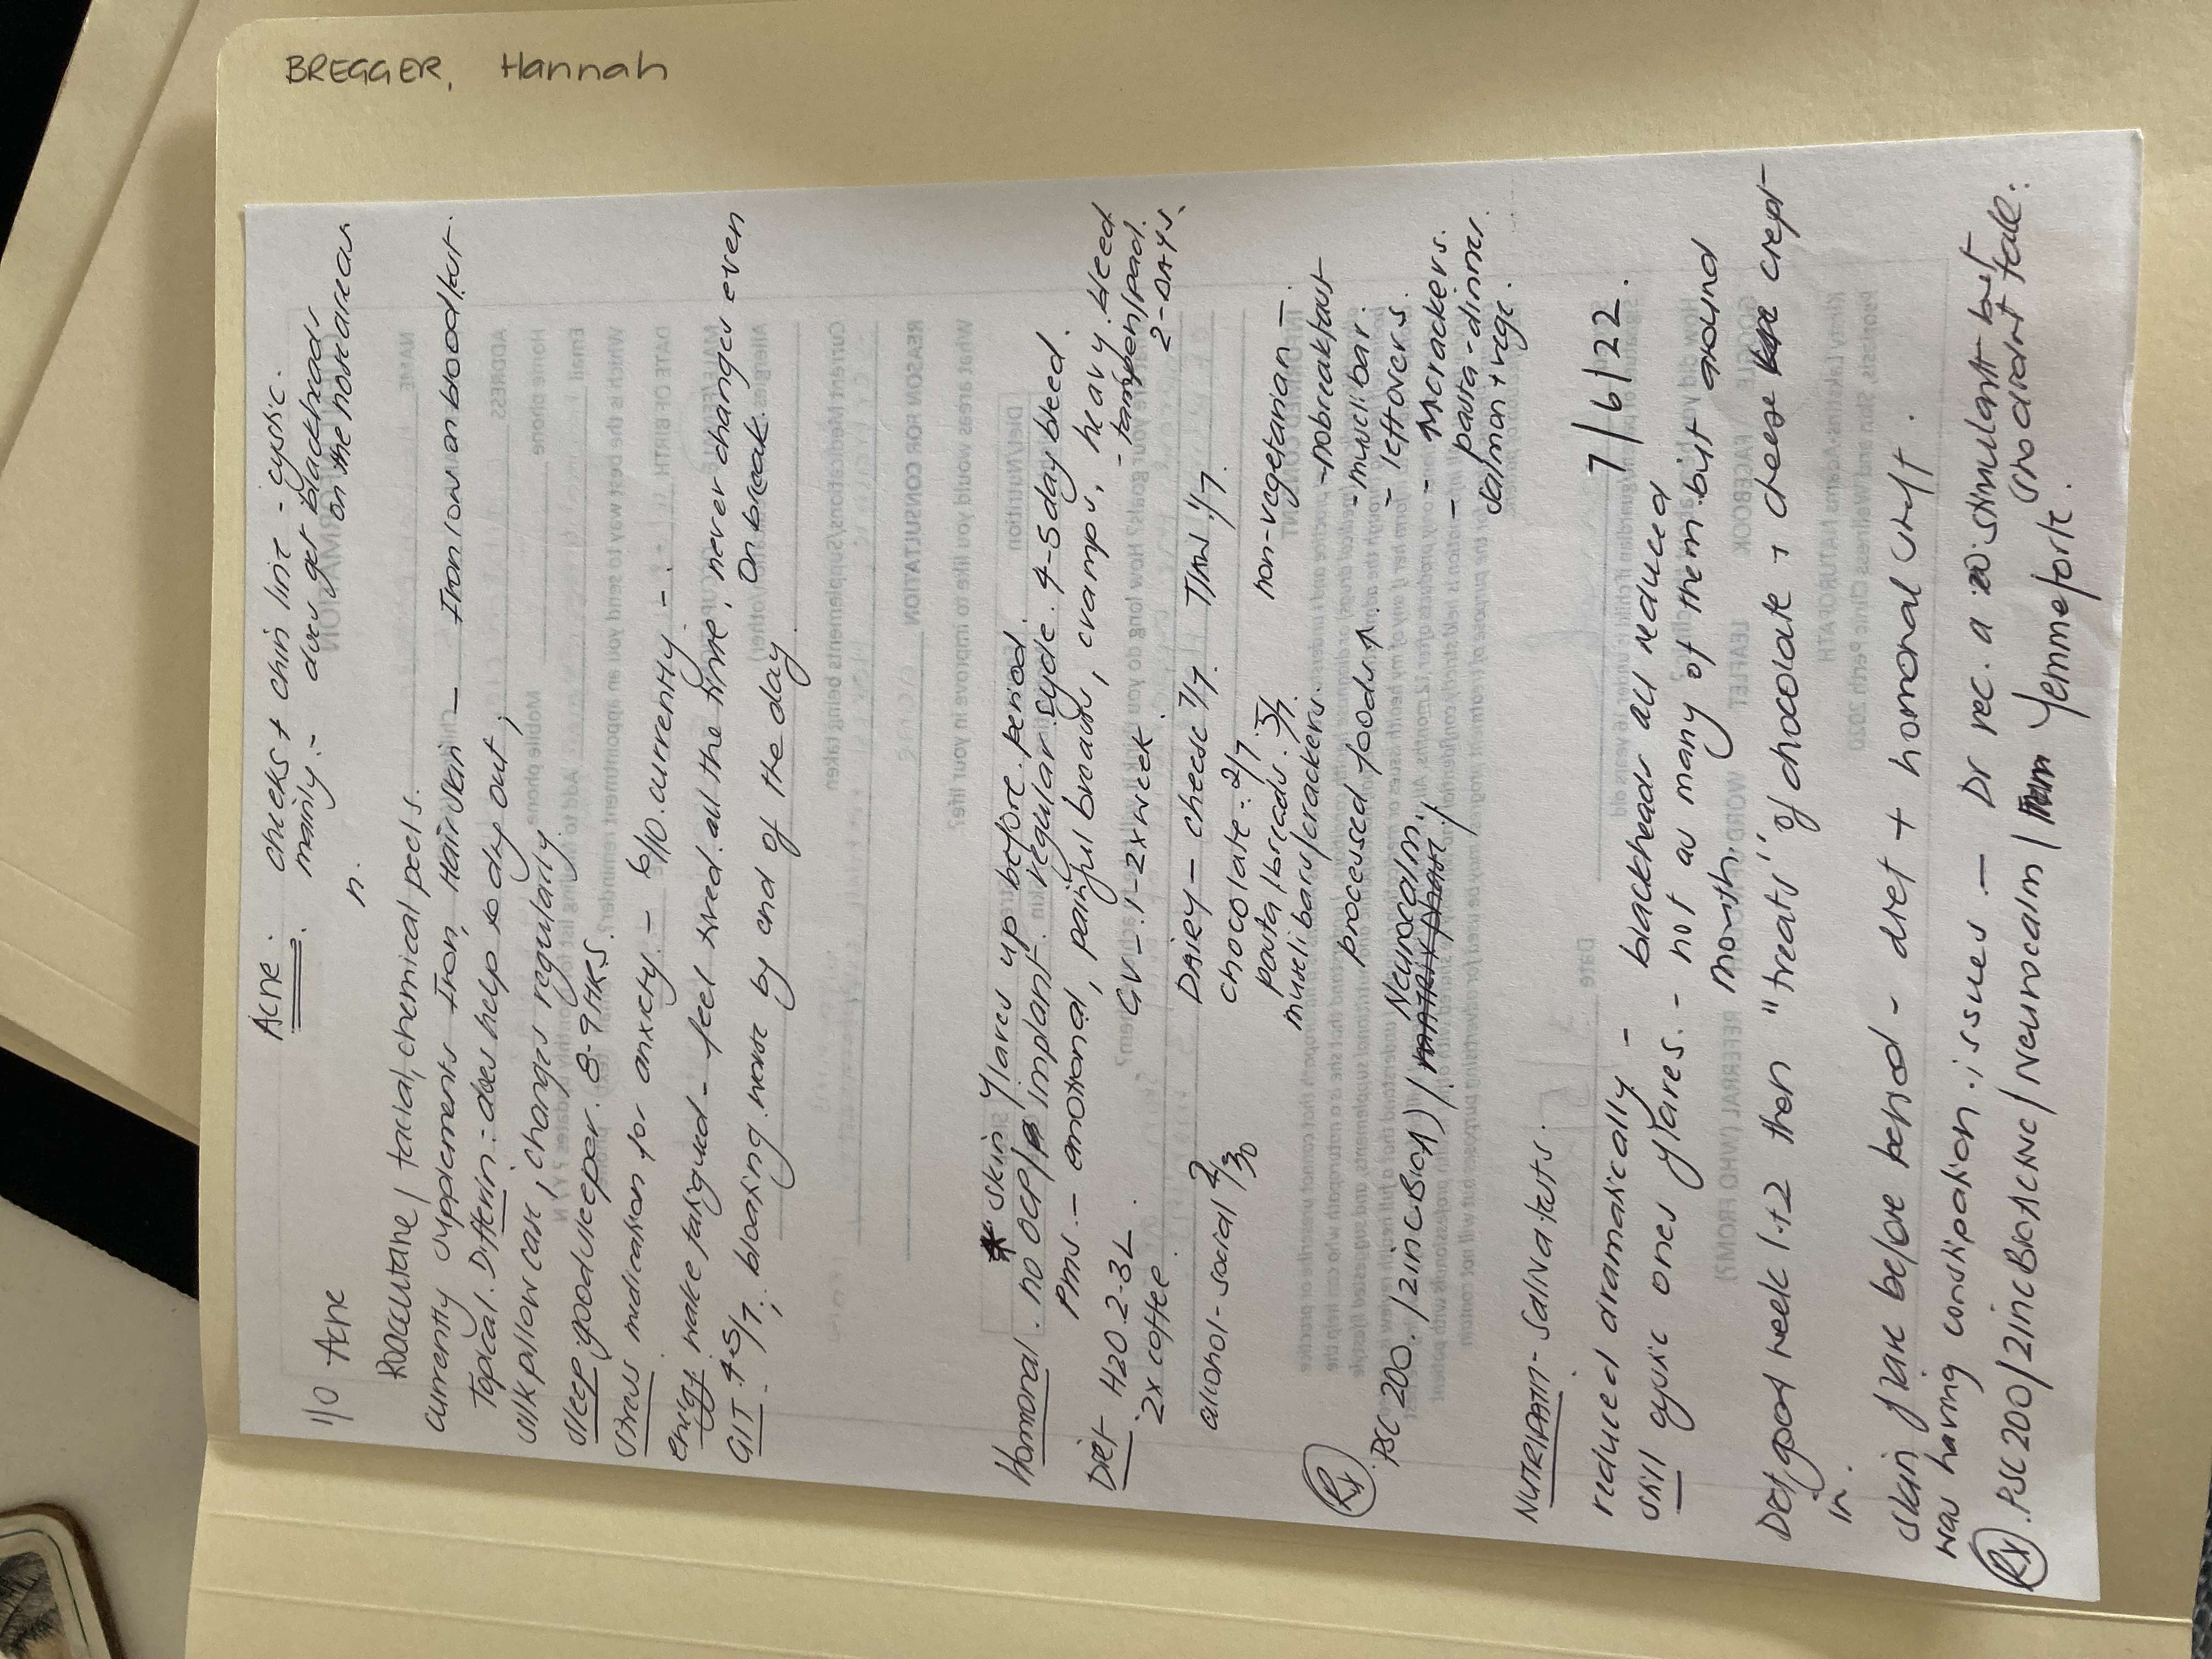 BREGGER, Hannah
Acne: cheeks + chin line - cystic.
mainly - does get blackheads
on the nose area
1/0 Acne
Roaccutane / facial, chemical peels.
currently supplements Iron, Hair skin - Iron low on blood test.
Topical. Differin - does help to dry out,
silk pillow case, changes regularly
sleep good sleeper. 8-9 HRS.
Stress medication for anxiety. - 6/10. currently. -
energy wake fatigued - feel tired all the time, never changes even
On break.
GIT 4-5/7, bloating worse by end of the day
* skin flares up before period.
Hormonal. no OCP / implant. regular cycle. 4-5 day bleed.
Pms. - emotional, painful breasts, cramps, heavy bleed
- tampon/pad.
2-DAYS.
Diet H2O 2-3L GV - 1-2x week.
2x coffee.
DAIRY - cheese 7/7. 1/7.
alcohol - social 2/30 chocolate - 2/7. non-vegetarian -
pasta/breads. 5/7. - no breakfast
muesli bars/crackers. - muesli bar.
processed foods ↑. - leftovers.
- crackers.
- pasta - dinner
salmon + vege.
Rx PSC 200. / zinc BioH) / Neurocalm.
NUTRIPATH - Saliva tests.
7/6/22.
reduced dramatically - blackheads all reduced
still cystic ones flares. - not as many of them but around
month.
Dot good week 1+2 then "treats" of chocolate + cheese crept
in.
skin flare before period - diet + homonal stuff.
was having constipation issues - Dr rec. a stimulant but
sno didnt take.
Rx. PSC 200 / zinc Bio Acne / Neurocalm / Femmeforte.